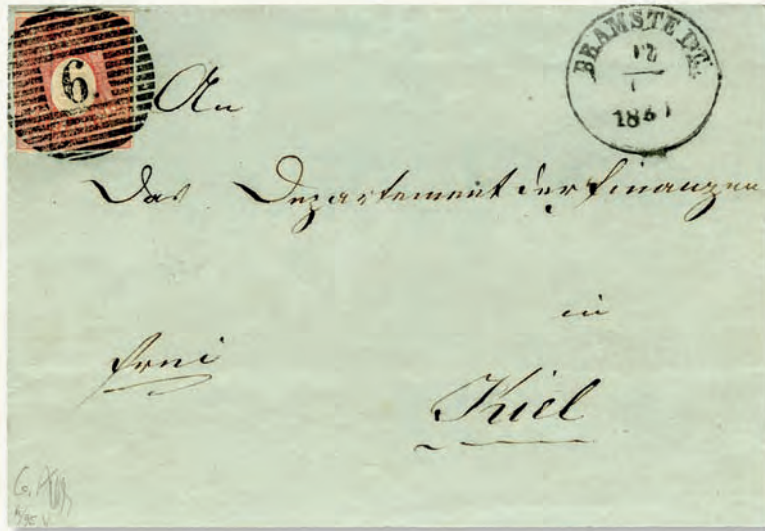 6
BRAMSTEDT.
12
1
1851
An
Das Departement der Finanzen
in
frei
Kiel